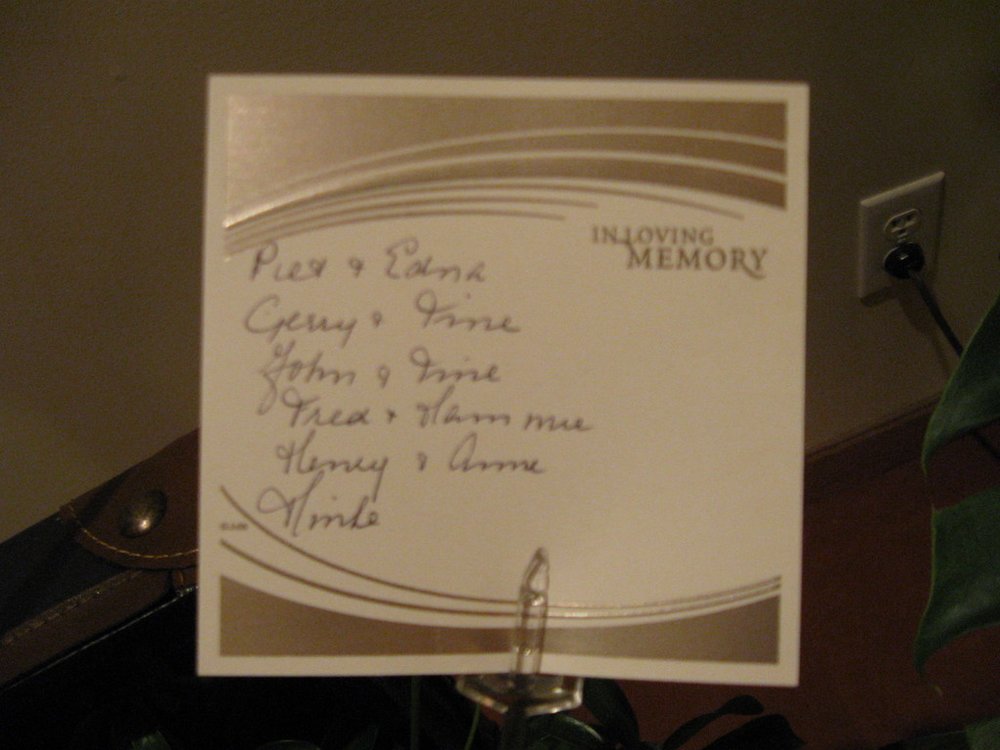 IN LOVING
MEMORY
Piet & Edna
Gerry & Tine
John & Tine
Fred & Hammie
Henry & Anne
Hinke